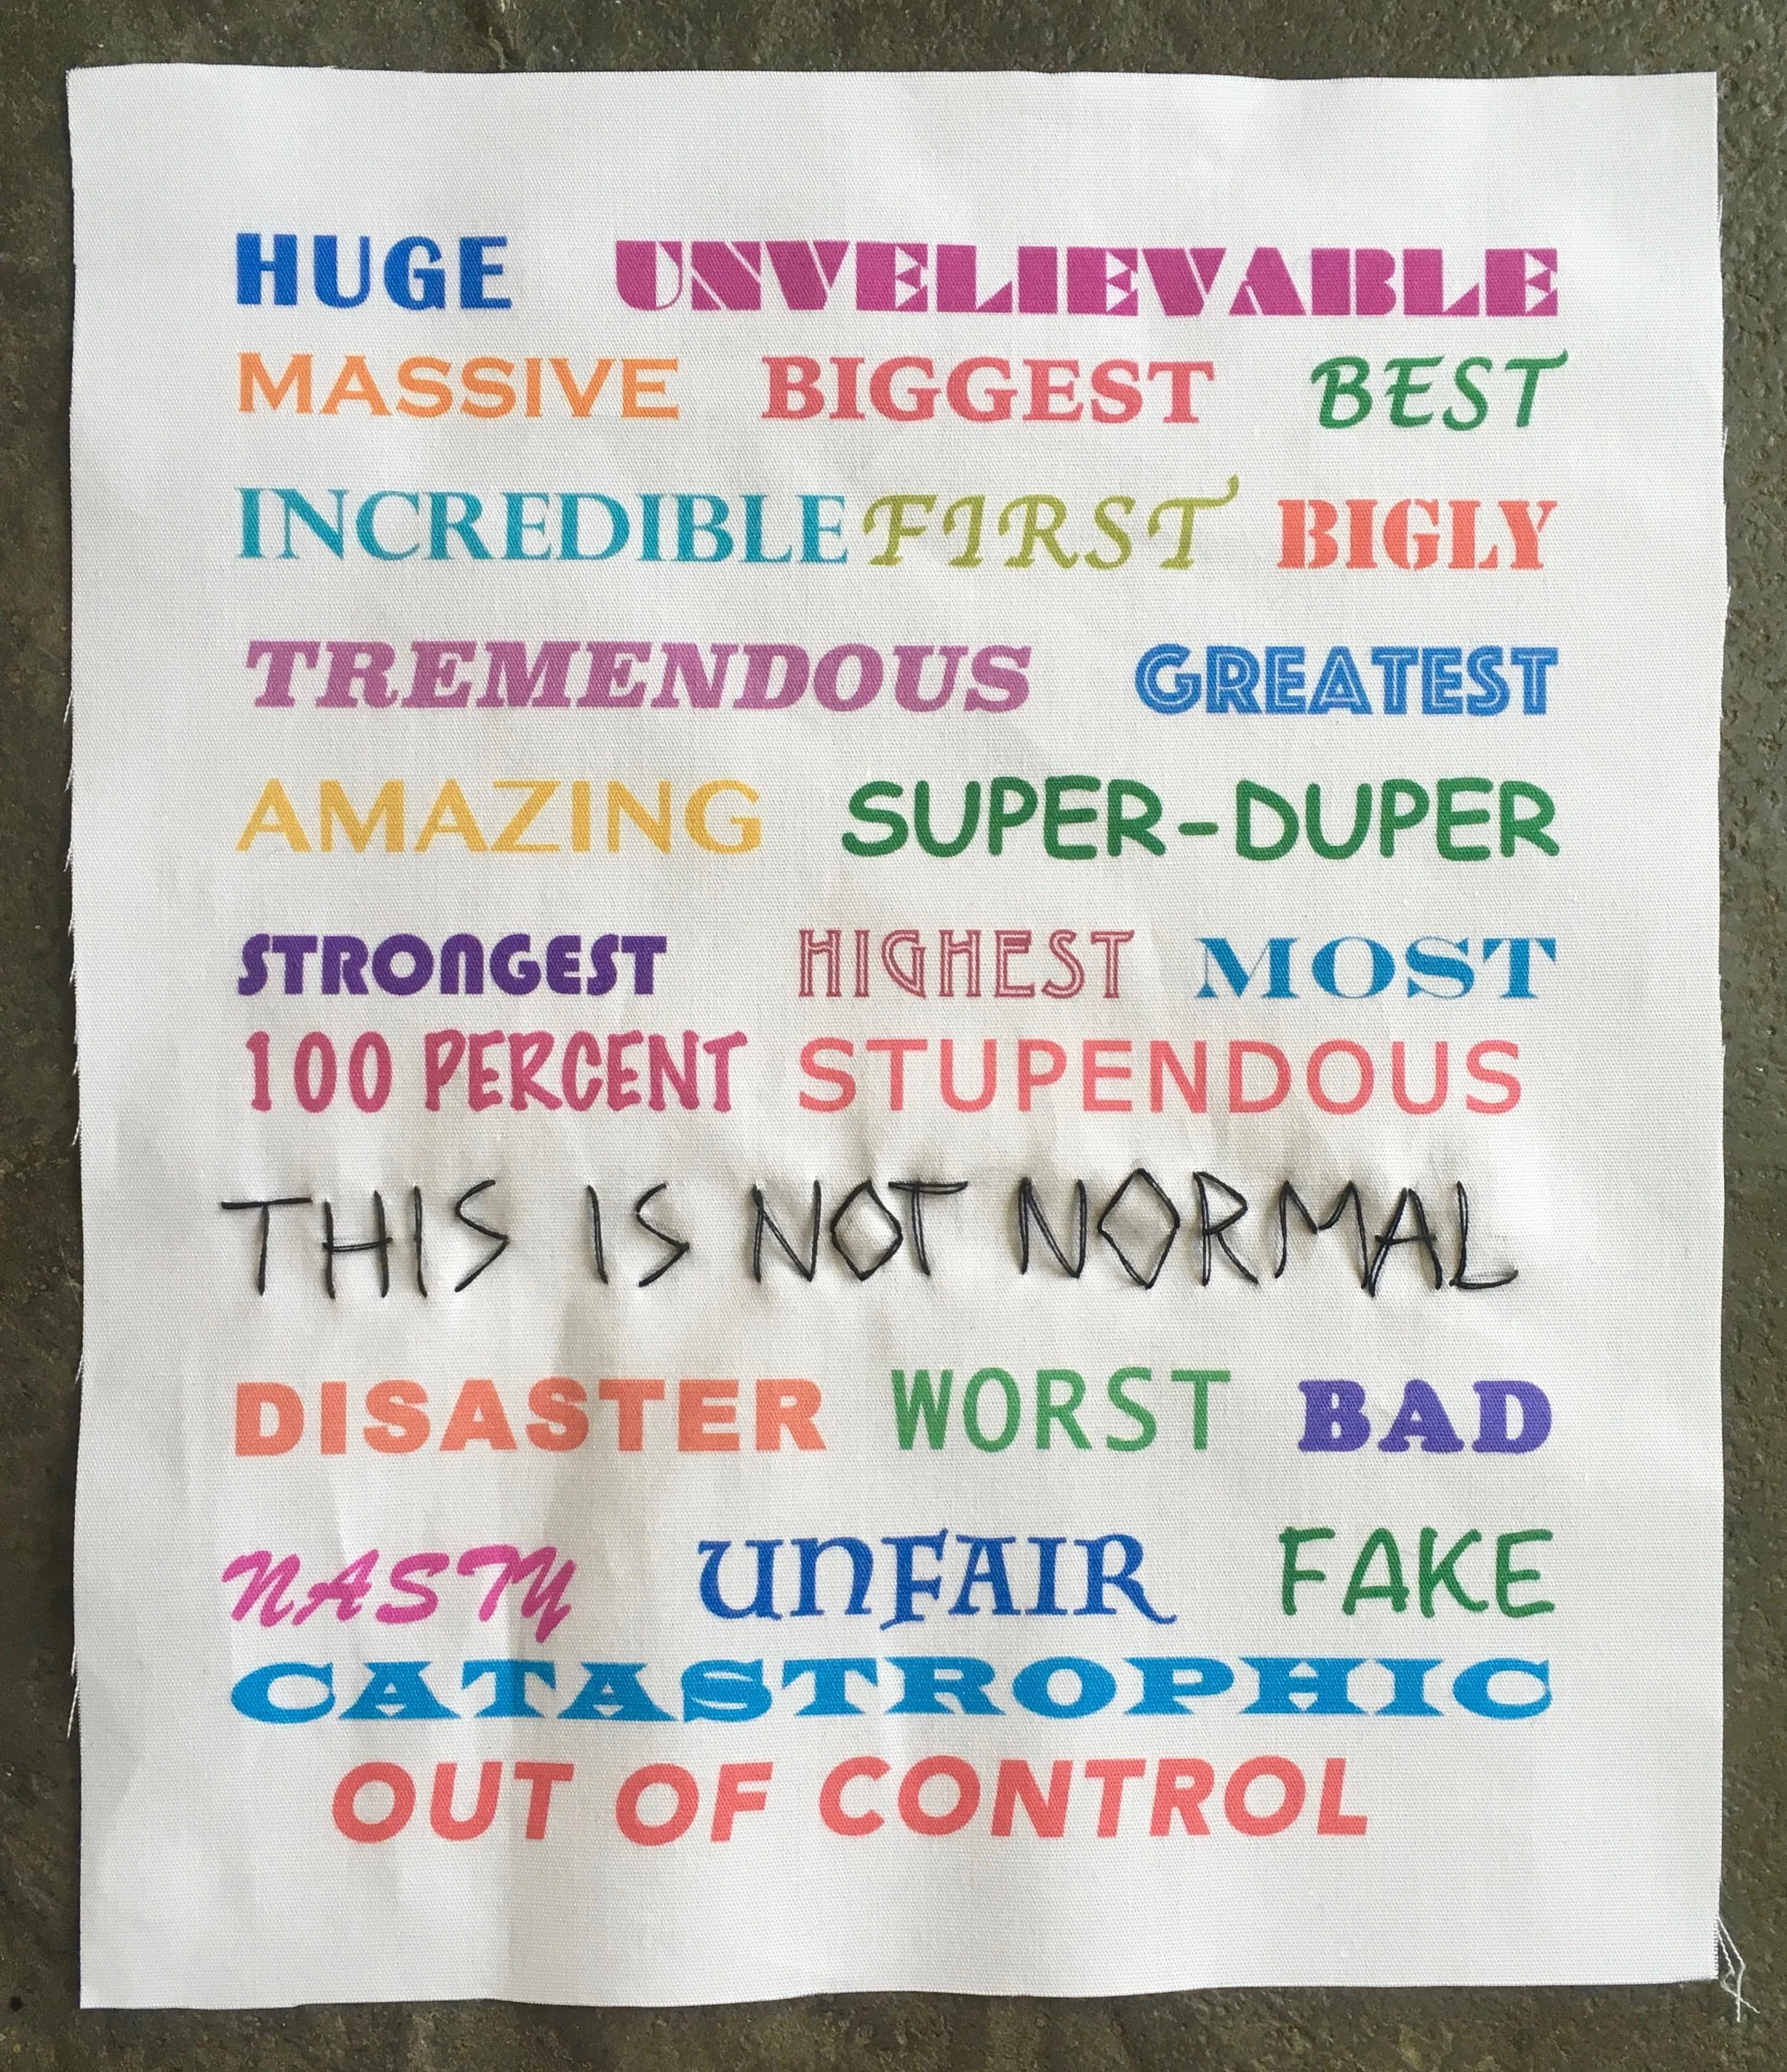 HUGE UNVELIEVABLE
MASSIVE BIGGEST BEST
INCREDIBLE FIRST BIGLY
TREMENDOUS GREATEST
AMAZING SUPER-DUPER
STRONGEST HIGHEST MOST
100 PERCENT STUPENDOUS
THIS IS NOT NORMAL
DISASTER WORST BAD
NASTY UNFAIR FAKE
CATASTROPHIC
OUT OF CONTROL